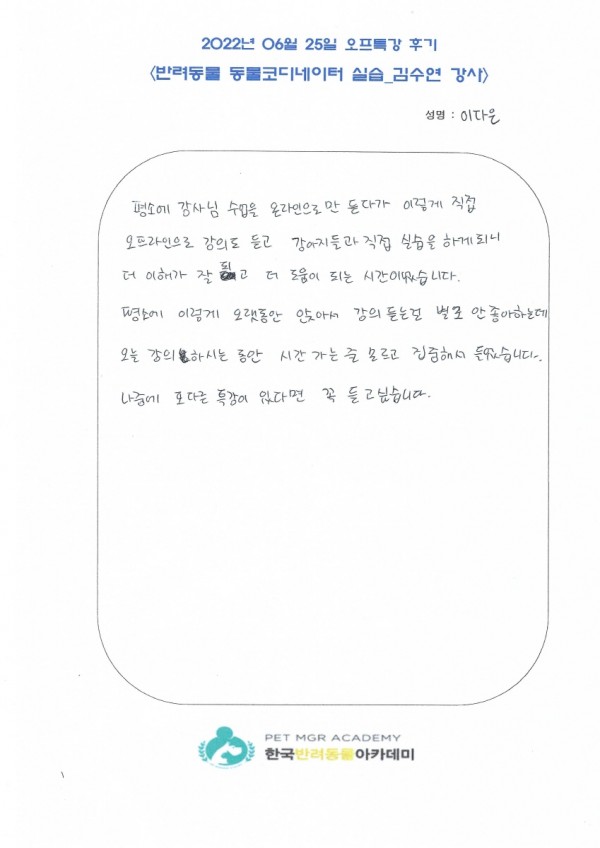 2022년 06월 25일 오프특강 후기
<반려동물 동물코디네이터 실습_김수연 강사>
성명 : 이다은
평소에 강사님 수업을 온라인으로만 듣다가 이렇게 직접
오프라인으로 강의도 듣고 강아지들과 직접 실습을 하게되니
더 이해가 잘 되고 더 도움이 되는 시간이었습니다.
평소에 이렇게 오랫동안 앉아서 강의 듣는걸 별로 안좋아하는데
오늘 강의하시는 동안 시간 가는 줄 모르고 집중해서 들었습니다.
나중에 또다른 특강이 있다면 꼭 듣고싶습니다.
PET MGR ACADEMY
한국반려동물아카데미